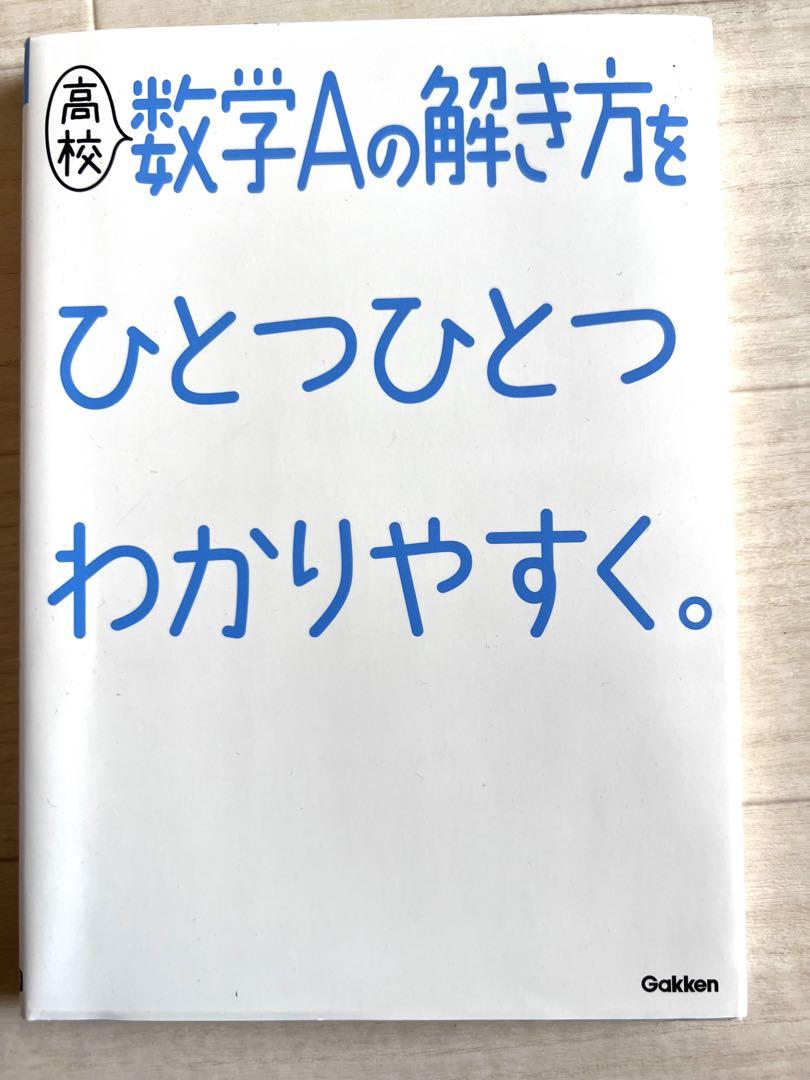 高校 数学Aの解き方を
ひとつひとつ
わかりやすく。
Gakken